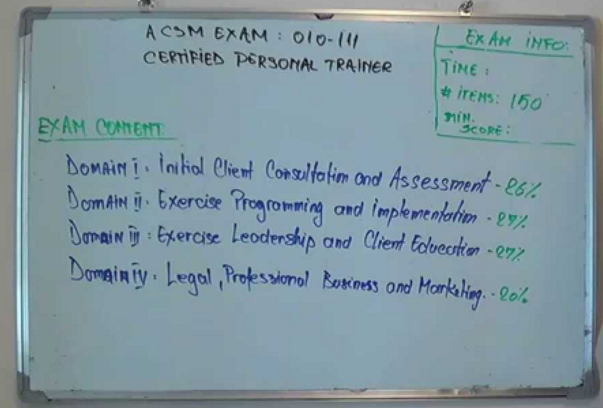 ACSM EXAM: 010-111
CERTIFIED PERSONAL TRAINER
EXAM INFO:
TIME:
# ITEMS: 150
MIN.
SCORE:
EXAM CONTENT:
DOMAIN I. Initial Client Consultation and Assessment - 26%
DOMAIN II. Exercise Programming and implementation - 27%
Domain III: Exercise Leadership and Client Education - 27%
Domain IV: Legal, Professional Business and Marketing. - 20%